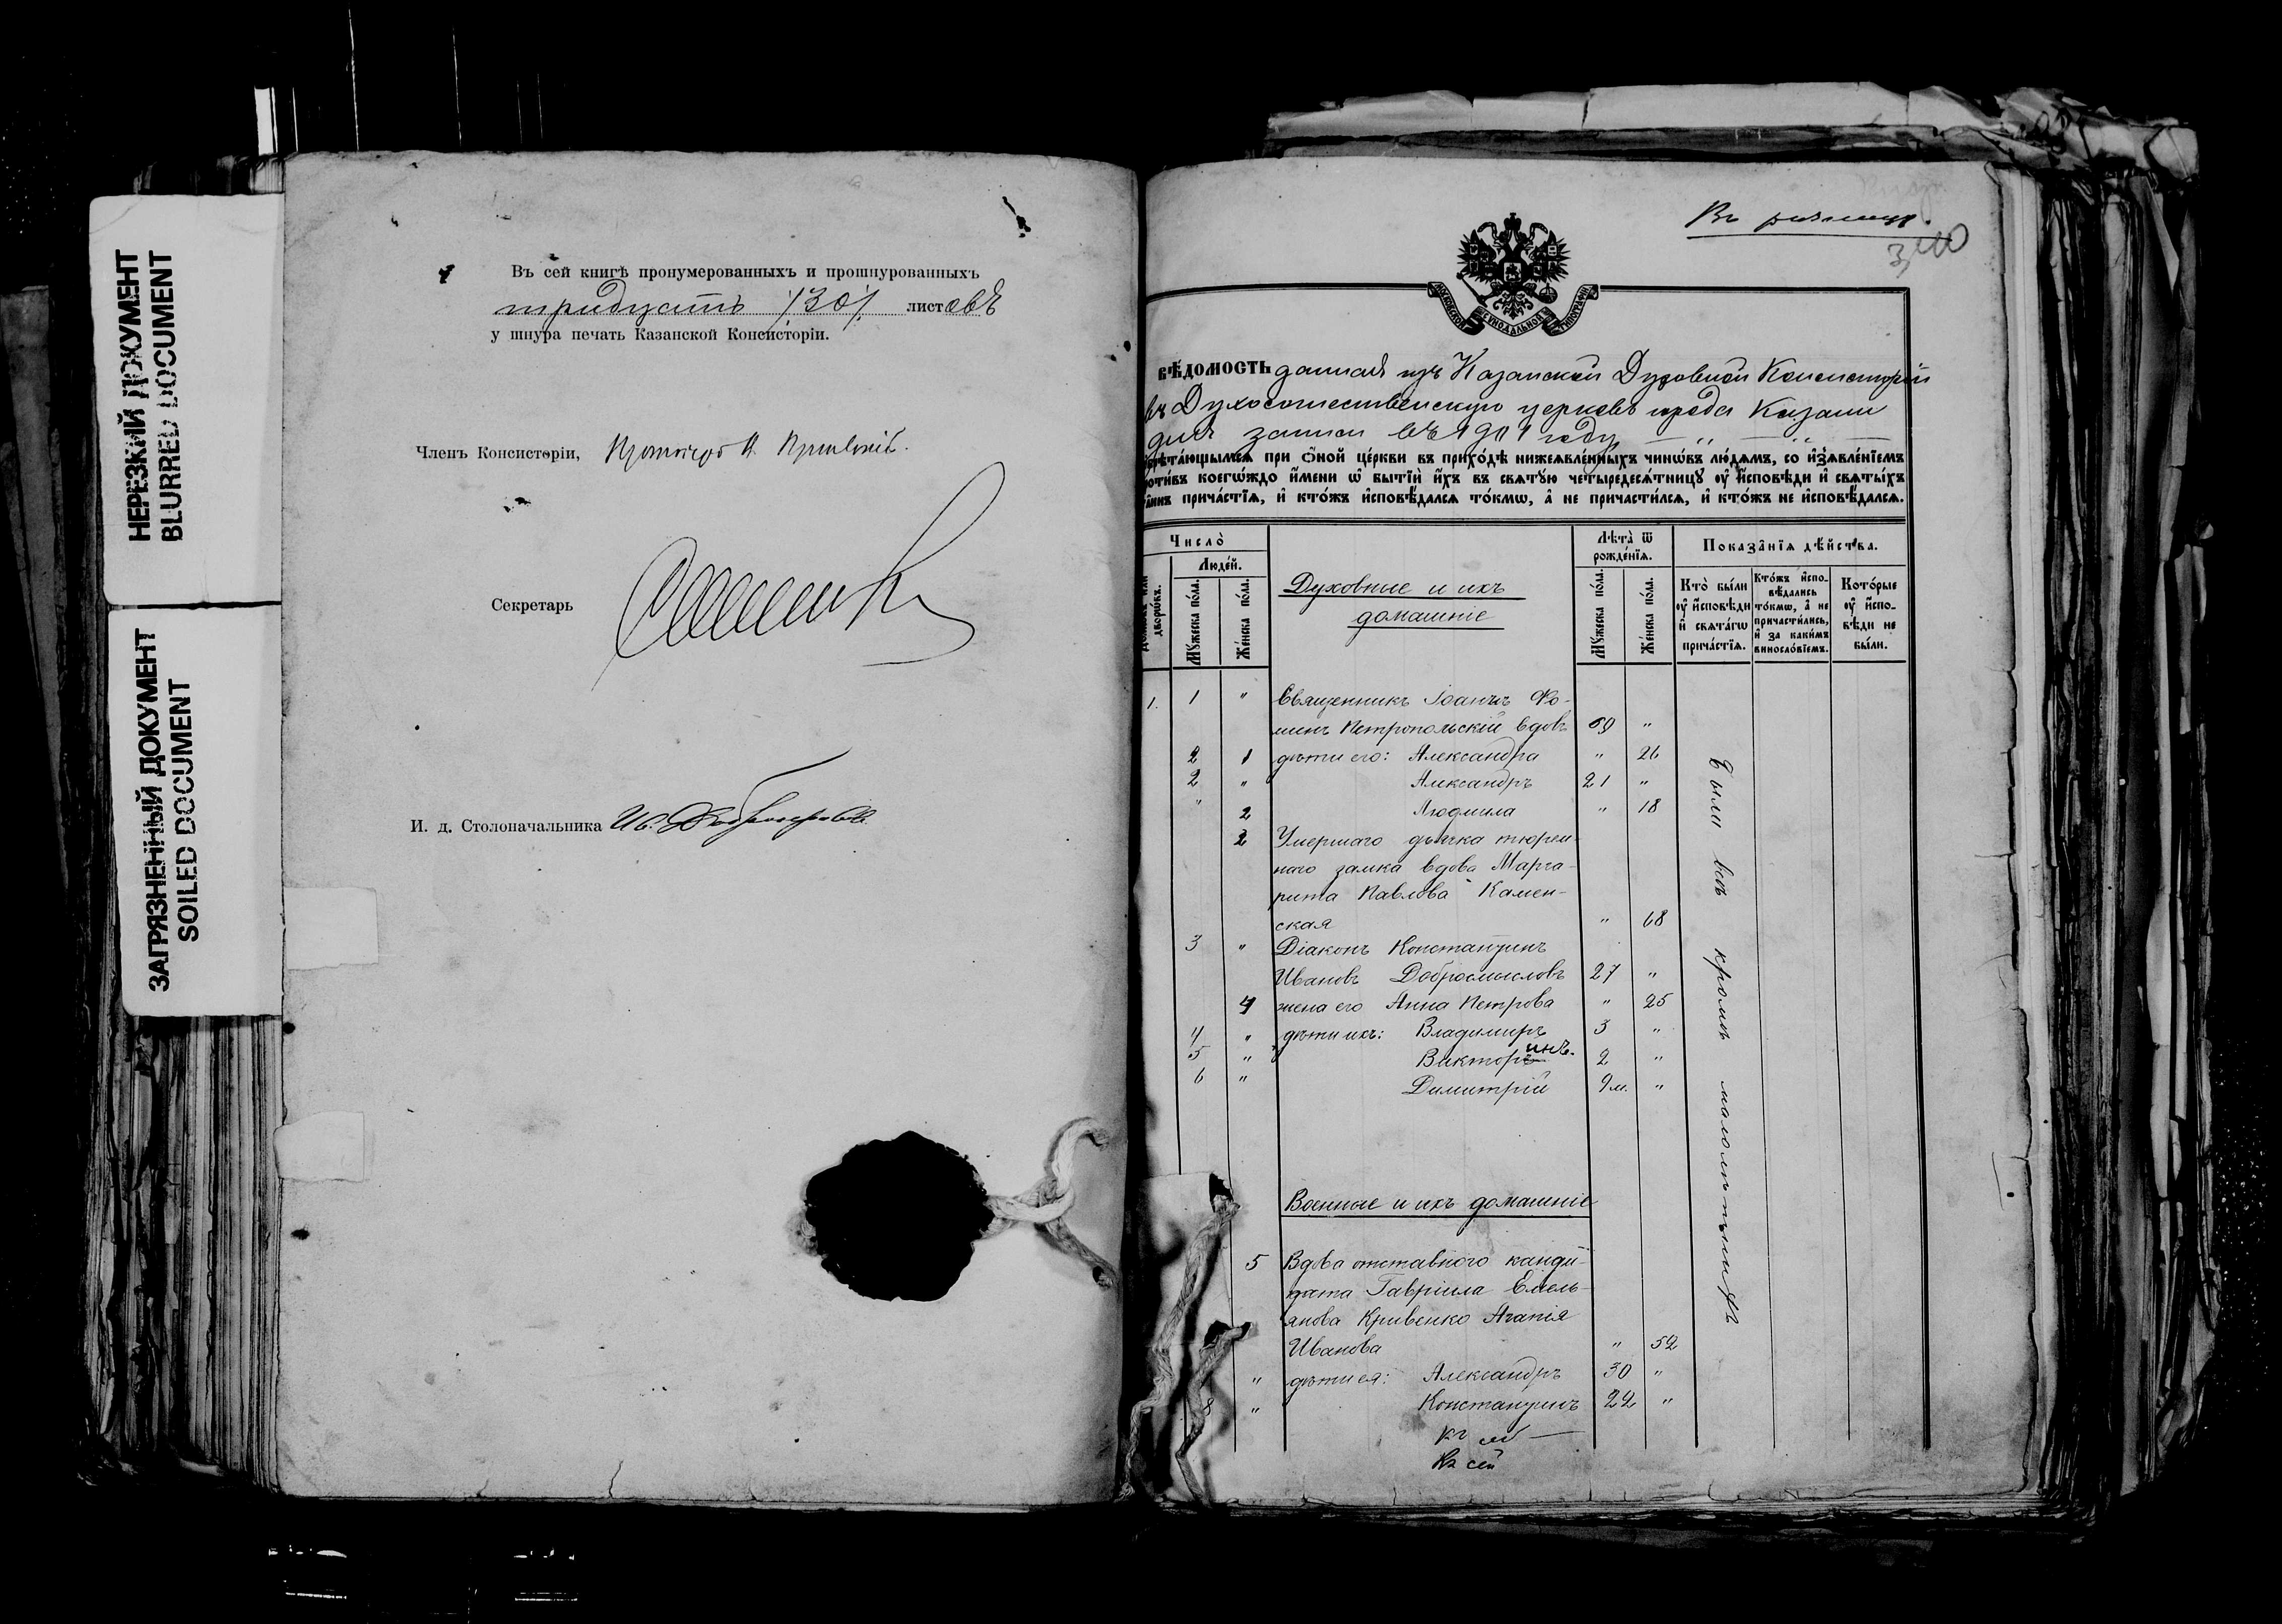 НЕРЕЗКИЙ ДОКУМЕНТ
BLURRED DOCUMENT
ЗАГРЯЗНЕННЫЙ ДОКУМЕНТ
SOILED DOCUMENT
Въ сей книгѣ пронумерованныхъ и прошнурованныхъ
тридцать /30/ листовъ
у шнура печать Казанской Консисторіи.
Членъ Консисторіи, Протоіерей
Секретарь
И. д. Столоначальника Ив.
Въ ризницу.
340
МОСКОВСКОЙ СѴНОДАЛЬНОЙ ТИПОГРАФІИ
ВѢДОМОСТЬ данная изъ Казанской Духовной Консисторіи
въ Духосошественскую церковь города Казани
для записи въ 1901 году
ѡбрѣтающымсѧ при ѻ҆ной церкви въ приходѣ нижеѧвленныхъ чинѡвъ людѧмъ, со и҆зѧвленіемъ
противъ коегѡждо и҆мени ѡ҆ бытїи и҆хъ въ свѧтꙋю четыредесѧтницꙋ ᲂу҆ и҆сповѣди и҆ свѧтыхъ
таинъ причастїѧ, и҆ ктожъ и҆сповѣдалсѧ токмѡ, а҆ не причастилсѧ, и҆ ктожъ не и҆сповѣдалсѧ.
Число
Людей.
Лѣта ѿ рожденїѧ.
Показанїѧ дѣйства.
домѡвъ или дворѡвъ.
Мꙋжеска пола.
Женска пола.
Духовные и ихъ
домашніе
Мꙋжеска пола.
Женска пола.
Кто были ᲂу҆ и҆сповѣди и҆ свѧтагѡ причастїѧ.
Ктожъ и҆сповѣдались токмѡ, а҆ не причастились, и҆ за какимъ винословїемъ.
Которые ᲂу҆ и҆сповѣди не были.
1. 1 " Священникъ Іоаннъ Ѳо-
минъ Петропольскій вдовъ 69 "
2 1 дѣти его: Александра " 26
2 " Александръ 21 "
" 2 Людмила " 18
2 Умершаго дьячка тюрем-
наго замка вдова Марга-
рита Павлова Камен-
ская " 68
3 " Діаконъ Константинъ
Ивановъ Добросмысловъ 27 "
4 жена его Анна Петрова " 25
4 " дѣти ихъ: Владимиръ 3 "
5 " Викторинъ. 2 "
6 " Димитрій 9 м. "
Были всѣ кромѣ малолѣтнихъ
Военные и ихъ домашніе
5 Вдова отставного канди-
дата Гавріила Емель-
янова Кривенко Агапія
Иванова " 52
" дѣти ея: Александръ 30 "
8 " Константинъ 22 "
Къ сей